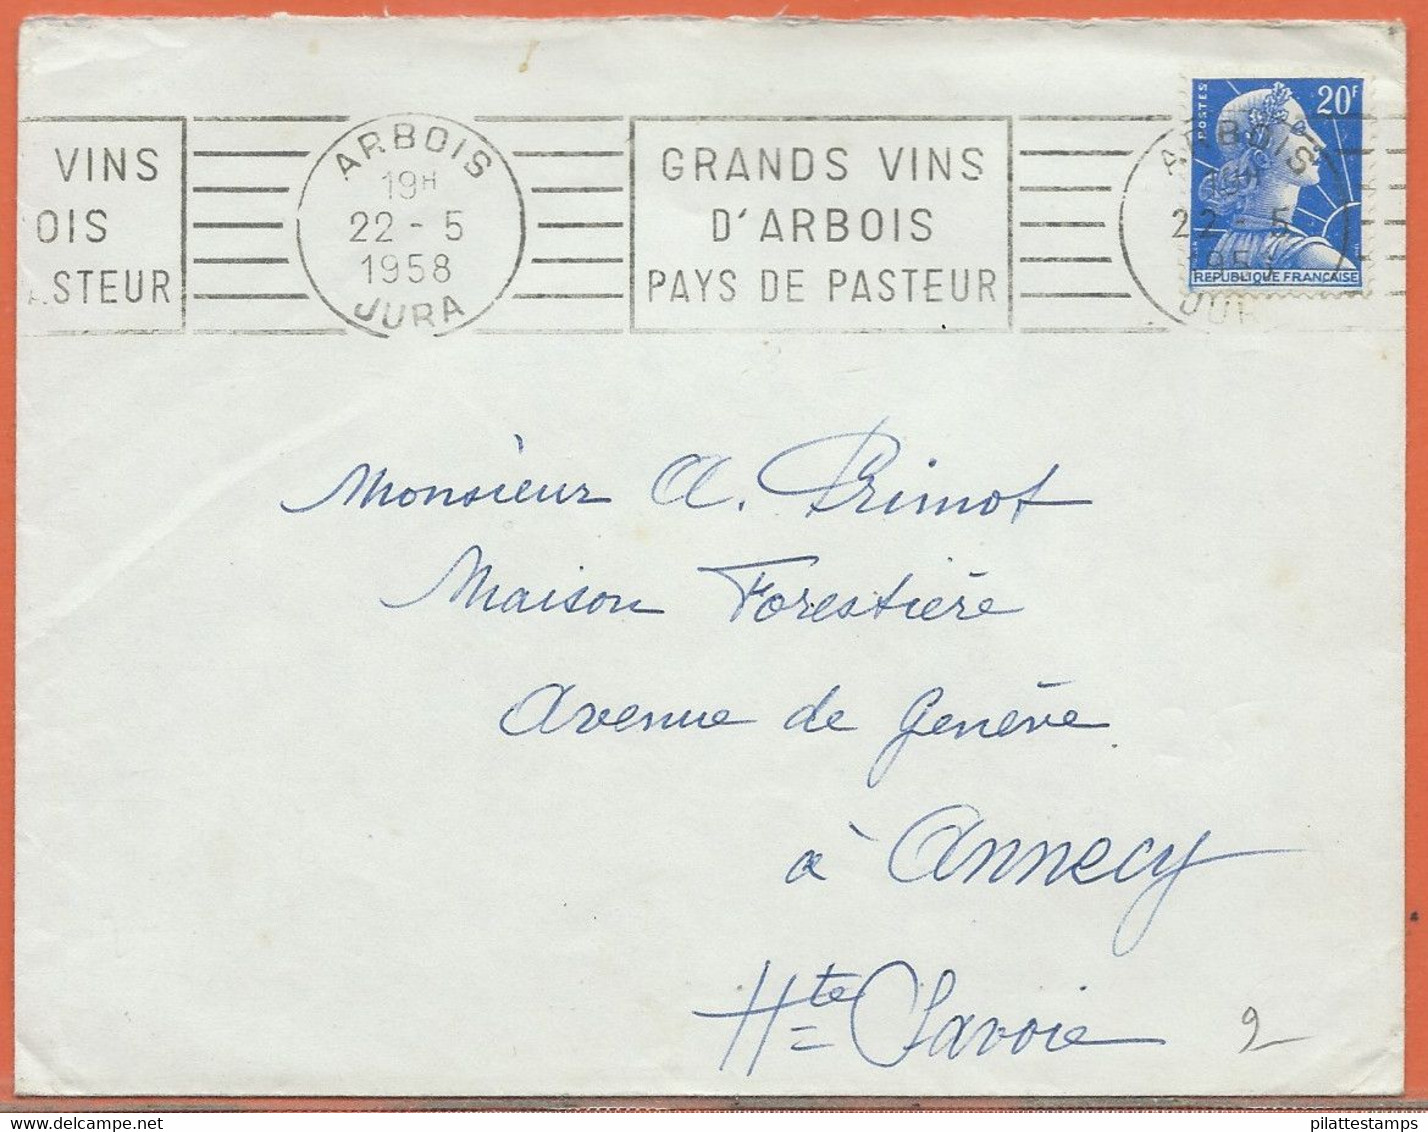 VINS
OIS
ASTEUR
ARBOIS
19H
22 - 5
1958
JURA
GRANDS VINS
D'ARBOIS
PAYS DE PASTEUR
POSTES
20F
ARBOIS
19H
22 - 5
1958
JURA
REPUBLIQUE FRANCAISE
Monsieur A. Primot
Maison Forestière
Avenue de Genève
à Annecy
Hte Savoie
2
pilattestamps